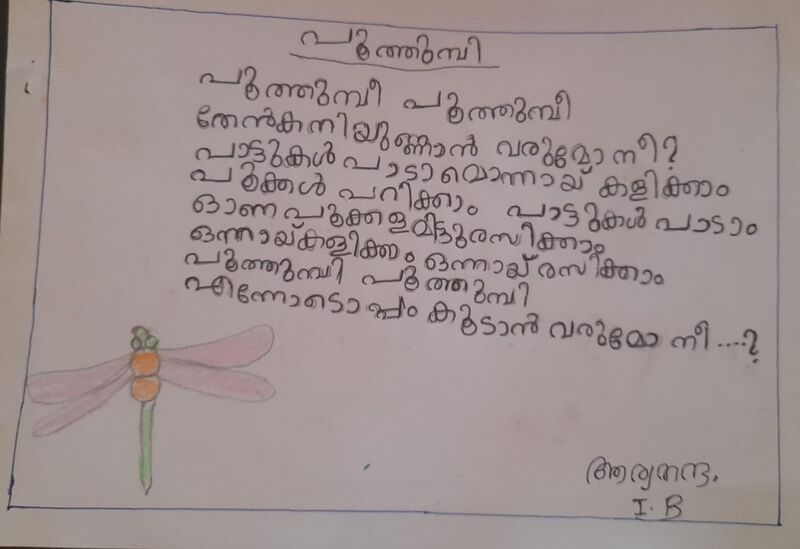 പൂത്തുമ്പി
പൂത്തുമ്പീ പൂത്തുമ്പീ
തേൻകനിയുണ്ണാൻ വരുമോ നീ?
പാട്ടുകൾ പാടാമൊന്നായ് കളിക്കാം
പൂക്കൾ പറിക്കാം പാട്ടുകൾ പാടാം
ഓണപൂക്കളമിട്ടുരസിക്കാം
ഒന്നായ്കളിക്കാം ഒന്നായ് രസിക്കാം
പൂത്തുമ്പി പൂത്തുമ്പി
എന്നോടൊപ്പം കൂടാൻ വരുമോ നീ ....?
ആര്യനന്ദ.
I. B